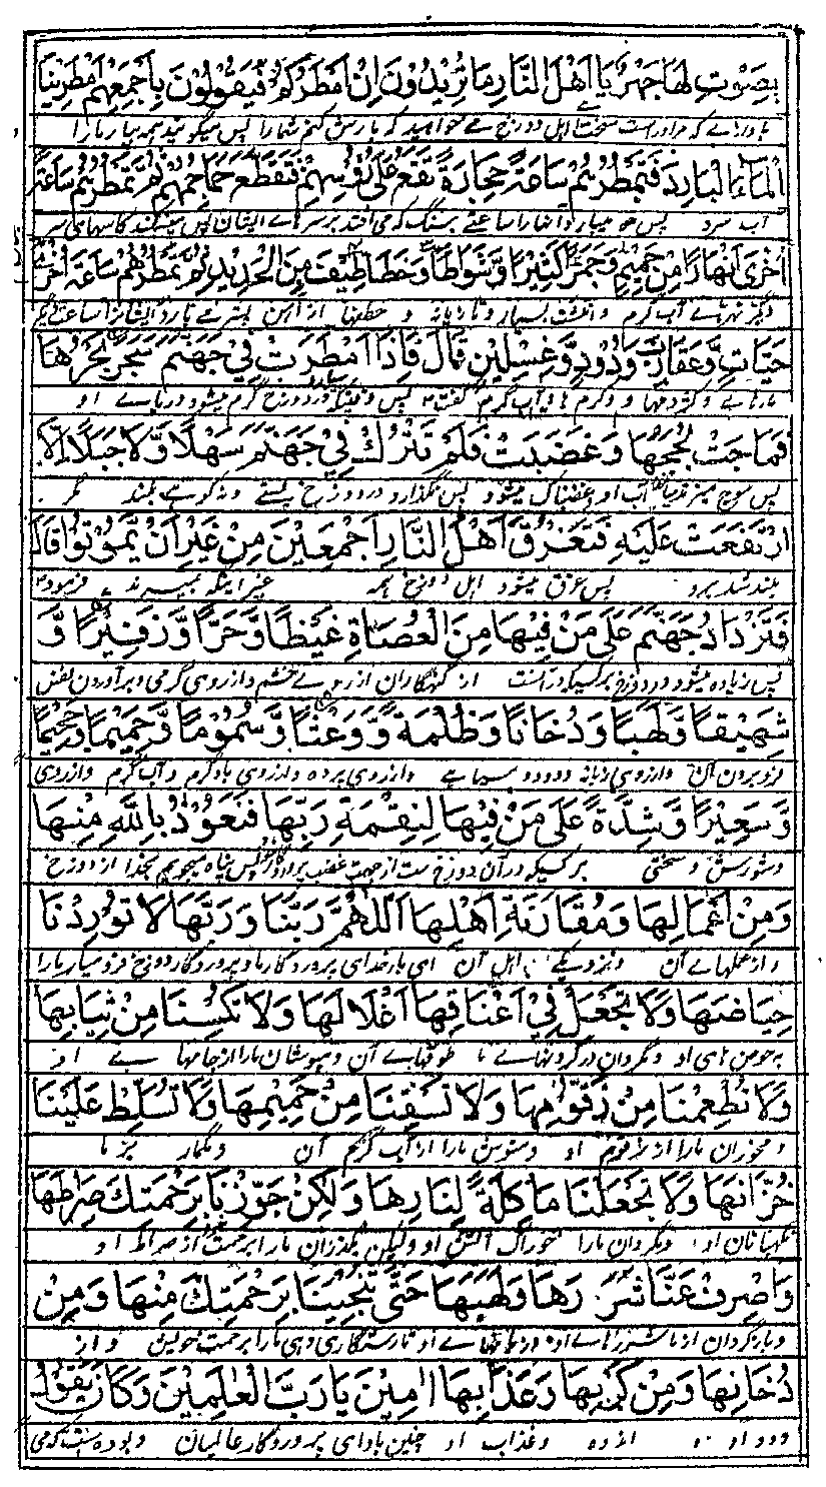 بِصَوْتٍ لَهَا جَهْرٍ يَا اَهْلَ النَّارِ مَا تُرِيْدُوْنَ اِنْ اَمْطَرَكُمْ فَيَقُوْلُوْنَ بِاَجْمَعِهِمْ اَمْطِرِيْنَا
اهل دوزخ چه میخواهید که بارش کنم شما را پس میگویند همه ببار ما را
اَلْمَاءَ الْبَارِدَ فَتُمْطِرُهُمْ سَاعَةً حِجَارَةً تَقَعُ عَلٰى رُؤُسِهِمْ فَتَقْطَعُ جَمَاجِمَهُمْ ثُمَّ تُمْطِرُهُمْ سَاعَةً
آب سرد پس می افتد بر سرهای ایشان پس
اُخْرٰى اَنْهَارًا مِنْ حَمِيْمٍ وَجَمْرًا كَثِيْرًا وَّشَوَاظًا وَّخَطَاطِيْفَ مِنَ الْحَدِيْدِ ثُمَّ تُمْطِرُهُمْ سَاعَةً اُخْرٰى
دیگر نهرهای آب گرم و بسیار و تازیانه و از آهن
حَيَّاتٍ وَّعَقَارِبَ وَدُوْدٍ وَّغِسْلِيْنٍ قَالَ فَاِذَا اَمْطَرَتْ فِيْ جَهَنَّمَ سُجِّرَ بَحْرُهَا
مارهای و کژدمها و کرم و آب گرم گفت پس دوزخ گرم میشود دریای او
فَمَاجَتْ لُجَجُهَا وَغَضَبَتْ فَلَمْ تَتْرُكْ فِيْ جَهَنَّمَ سَهْلًا وَّلَا جَبَلًا اِلَّا
پس موج میزند آب او و غضبناک میشود پس نگذارد در دوزخ پستی و نه کوهی بلند مگر
ارْتَفَعَتْ عَلَيْهِ فَتَغْرُقُ اَهْلُ النَّارِ اَجْمَعِيْنَ مِنْ غَيْرِ اَنْ يَّمُوْتُوْا قَالَ
بلند شد برو پس غرق میشود اهل دوزخ همه غیر اینکه بمیرند فرمود
فَتَزْدَادُ جَهَنَّمُ عَلٰى مَنْ فِيْهَا مِنَ الْعُصَاةِ غَيْظًا وَّحَرًّا وَّزَفِيْرًا وَّ
پس زیاده میشود دوزخ بر کسیکه در آنست از گنهکاران از روی خشم و از روی گرمی و برآوردن نفس
شَهِيْقًا وَّلَهَبًا وَدُخَانًا وَظُلْمَةً وَّ وَعْثًا وَّسَمُوْمًا وَّحَمِيْمًا وَّجَحِيْمًا
فرو بردن آن و از روی زبانه و دود و سیاهی و از روی و از روی باد گرم و آب گرم و از روی
وَّسَعِيْرًا وَّشِدَّةً عَلٰى مَنْ فِيْهَا لِنِقْمَةِ رَبِّهَا فَنَعُوْذُ بِاللّٰهِ مِنْهَا
و سوزش و سختی بر کسیکه در آن دوزخ ست از جهت غضب پروردگار پس پناه میجویم بخدا از دوزخ
وَمِنْ اَعْمَالِهَا وَمُقَارَنَةِ اَهْلِهَا اَللّٰهُمَّ رَبَّنَا وَرَبَّهَا لَا تُوْرِدْنَا
و از عملهای آن و نزدیکی اهل آن ای بار خدای پروردگار ما و پروردگار دوزخ فرو میار ما را
حِيَاضَهَا وَلَا تَجْعَلْ فِيْ اَعْنَاقِهَا اَغْلَالَهَا وَلَا تَكْسُنَا مِنْ ثِيَابِهَا
بحوض های او و مگردان در گردنهای ما طوقهای آن و مپوشان ما را از جامهای او
وَلَا تُطْعِمْنَا مِنْ زَقُّوْمِهَا وَلَا تَسْقِنَا مِنْ حَمِيْمِهَا وَلَا تُسَلِّطْ عَلَيْنَا
و مخوران ما را از زقوم او و منوش ما را از آب گرم آن و مگمار بر ما
خُزَّانَهَا وَلَا تَجْعَلْنَا مَاْكَلَةً لِّنَارِهَا وَلٰكِنْ جَوِّزْنَا بِرَحْمَتِكَ صِرَاطَهَا
نگهبانان او و مگردان ما را خوراک آتش او و لیکن بگذران ما را برحمت از صراط او
وَاصْرِفْ عَنَّا شَرَرَهَا وَلَهَبَهَا حَتّٰى تُنْجِيَنَا بِرَحْمَتِكَ مِنْهَا وَمِنْ
و بازگردان از ما شررهای او و زبانهای او تا رستگاری دهی ما را برحمت خویش و از
دُخَانِهَا وَمِنْ كَرْبِهَا وَعَذَابِهَا اٰمِيْنَ يَا رَبَّ الْعٰلَمِيْنَ وَكَانَ يَقُوْلُ
دود او از و عذاب او چنین باد ای پروردگار عالمیان و بوده است که می